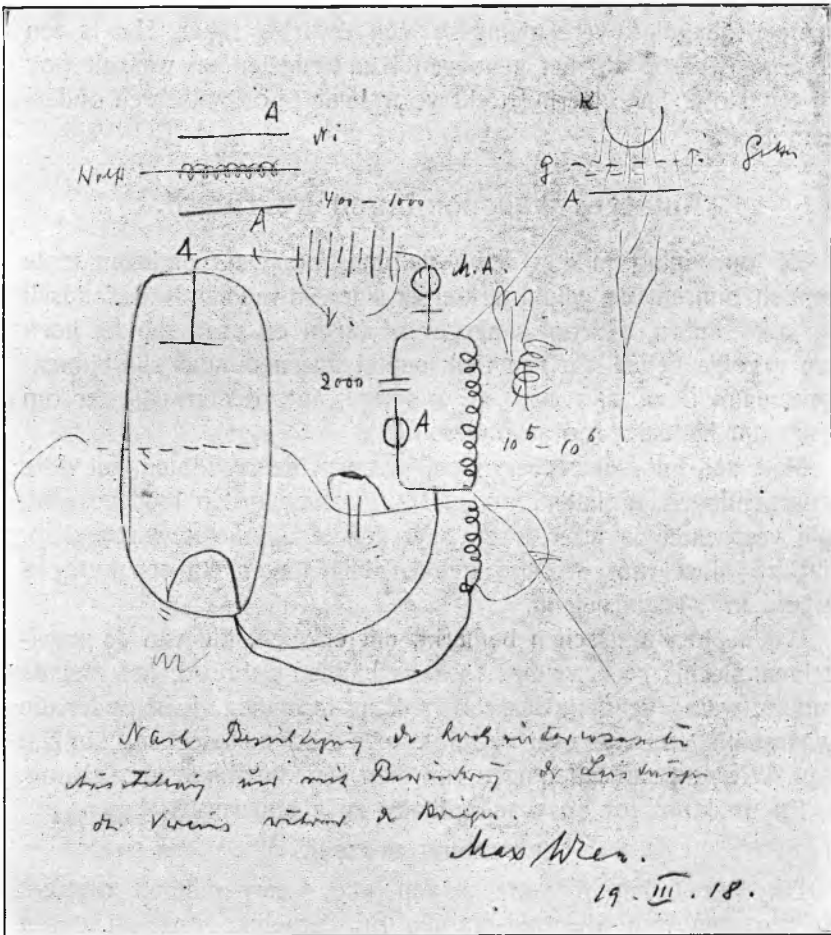 A
Ni
K
g
Gitter
A
400 – 1000
A
A
M.A.
V.
2000
A
10⁵ – 10⁶
Nach Besichtigung der hochinteressanten
Ausstellung und mit Bewunderung der Leistungen
des Vereins während des Krieges
Max Wien.
19. III. 18.